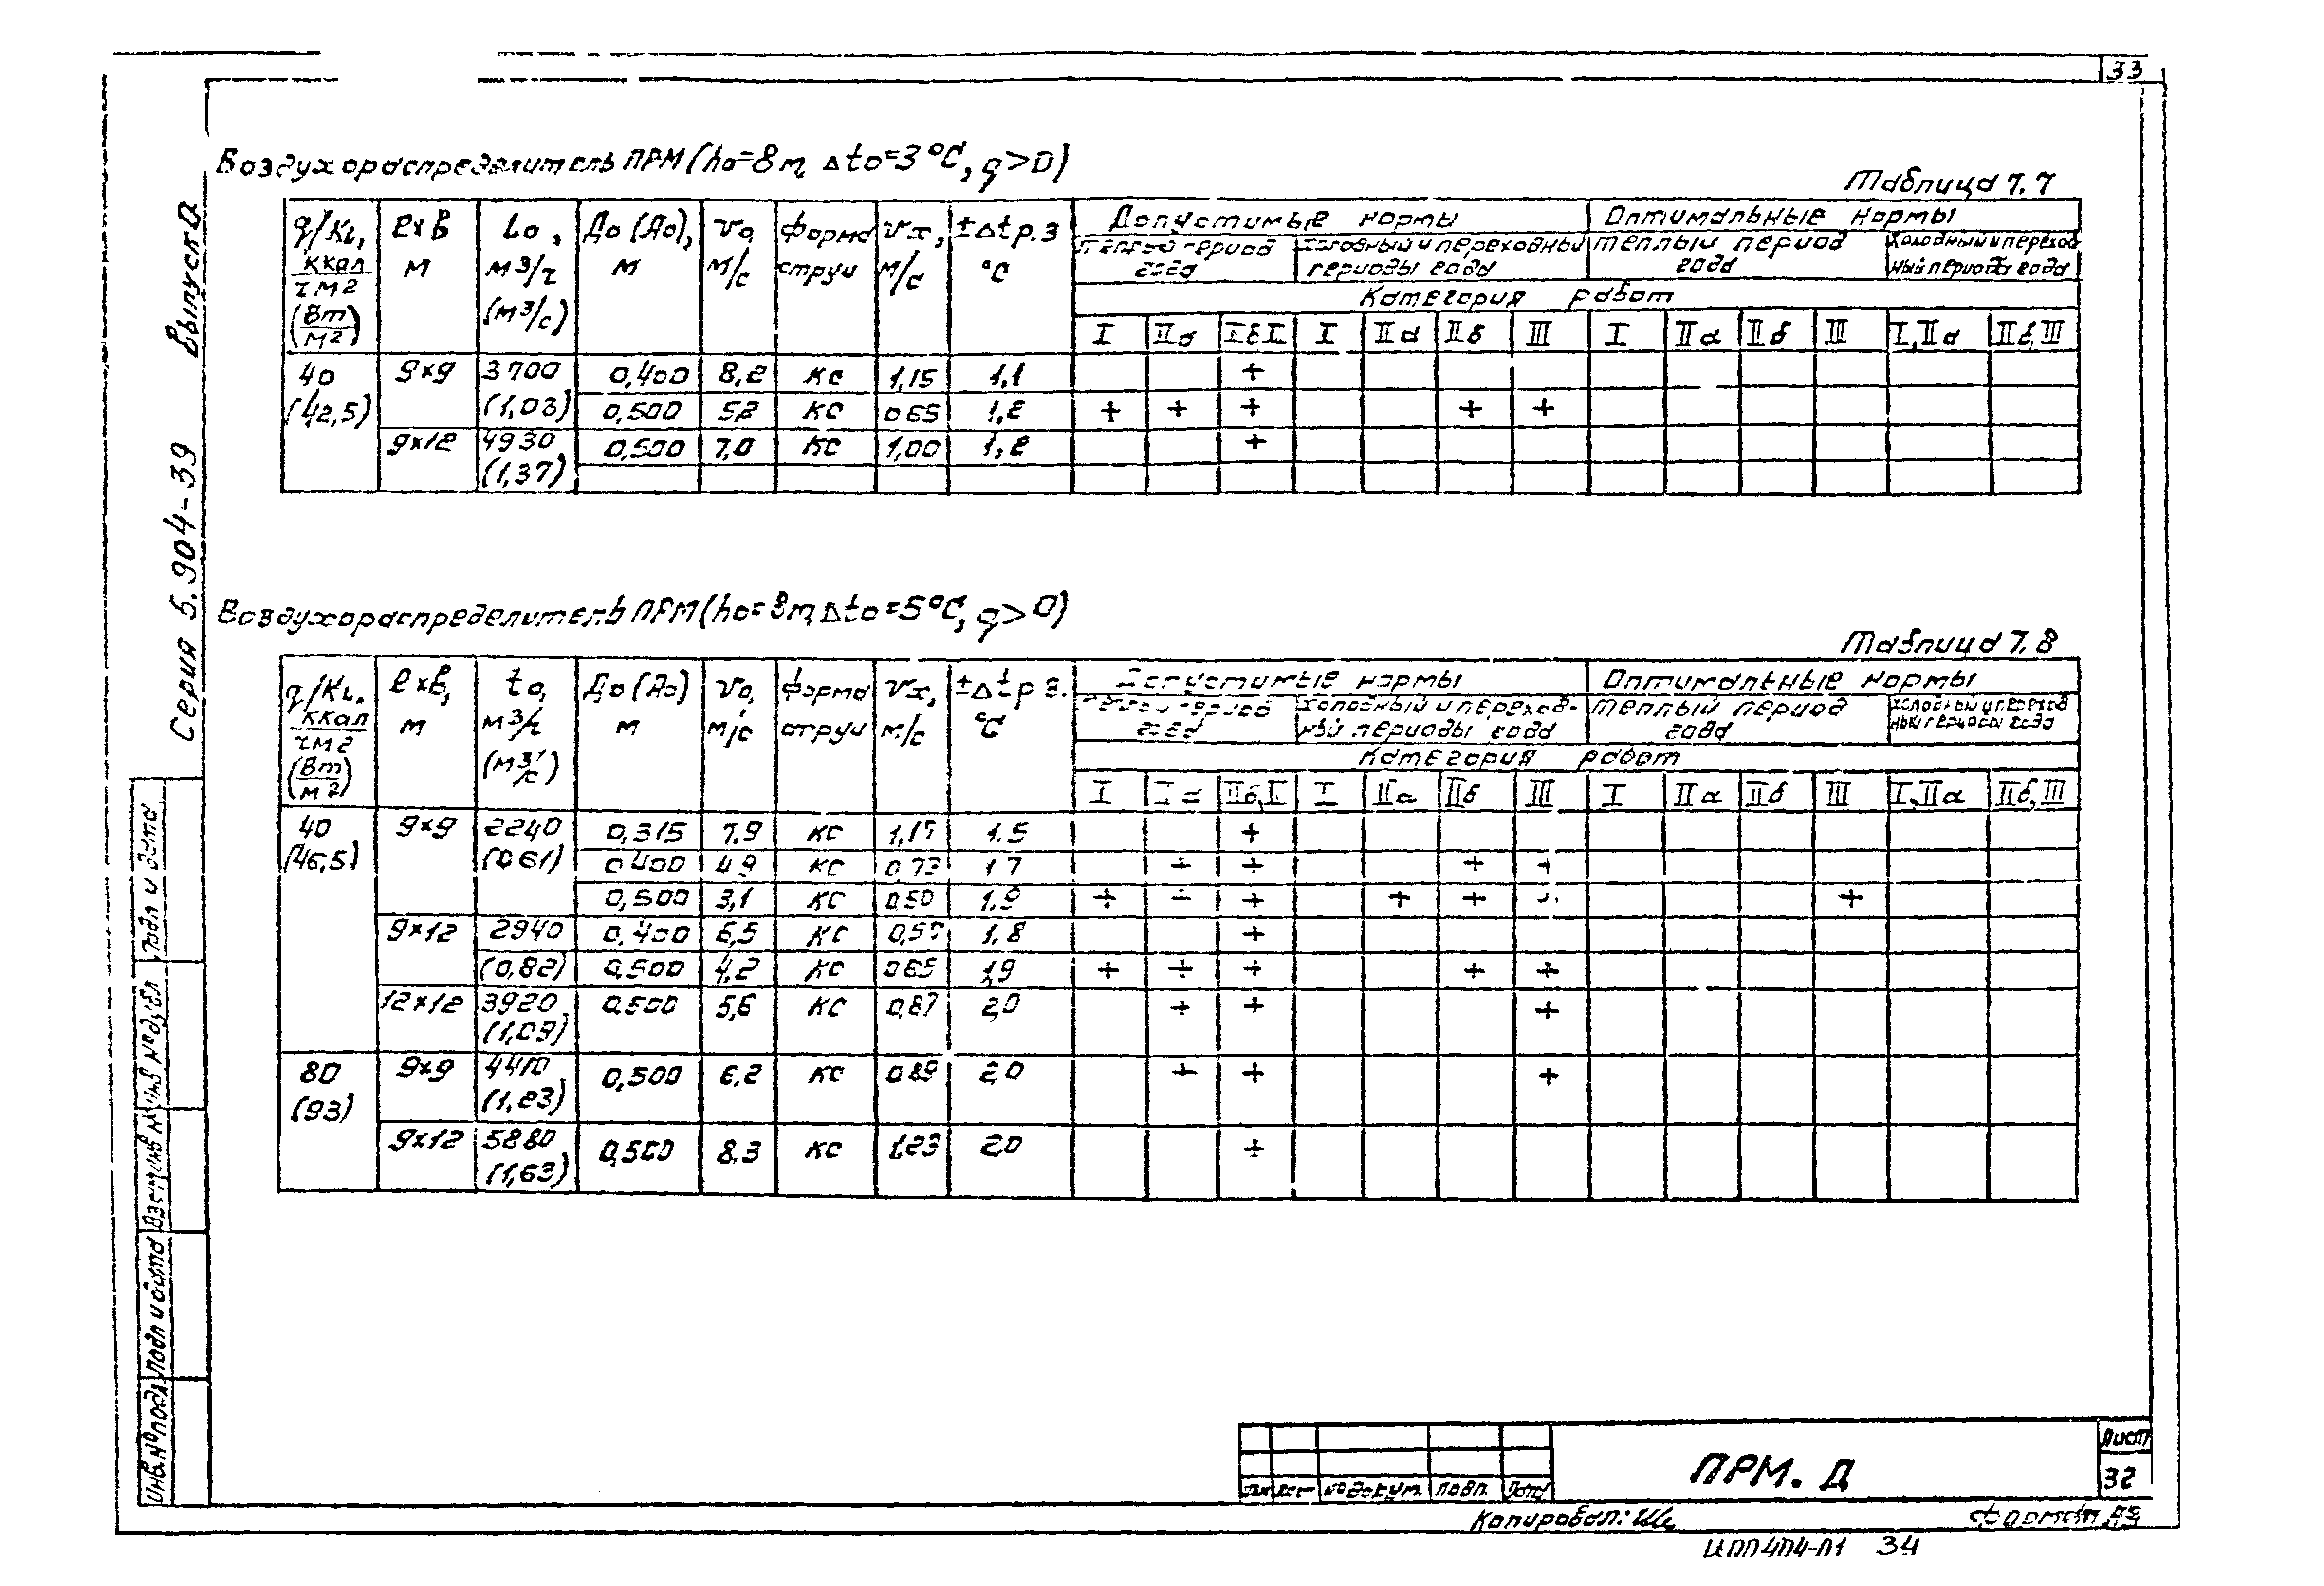 33
Воздухораспределитель ПРМ (ho=8м, Δto=3°C, q>0)
Таблица 7.7
q/KL, ккал/чм2 (Вт/м2) | l×в м | Lo, м3/ч (м3/с) | До (До), м | vo, м/с | форма струи | vx, м/с | ±Δtр.з °C | Допустимые нормы | Оптимальные нормы
теплый период года | холодный и переходный периоды года | теплый период года | холодный и переходный периоды года
Категория работ
I | IIа | IIб, III | I | IIа | IIб | III | I | IIа | IIб | III | I, IIа | IIб, III
40 (42,5) | 9×9 | 3700 (1,03) | 0,400 | 8,2 | КС | 1,15 | 1,1 | | | +
0,500 | 5,2 | КС | 0,65 | 1,2 | + | + | + | | | + | +
9×12 | 4930 (1,37) | 0,500 | 7,0 | КС | 1,00 | 1,2 | | | +
Воздухораспределитель ПРМ (ho=8м, Δto=5°C, q>0)
Таблица 7.8
q/KL, ккал/чм2 (Вт/м2) | l×в, м | to, м3/ч (м3/с) | До (До) м | vo, м/с | форма струи | vx, м/с | ±Δtр.з. °C | Допустимые нормы | Оптимальные нормы
теплый период года | холодный и переходный периоды года | теплый период года | холодный и переходный периоды года
Категория работ
I | IIа | IIб, III | I | IIа | IIб | III | I | IIа | IIб | III | I, IIа | IIб, III
40 (46,5) | 9×9 | 2240 (0,61) | 0,315 | 7,9 | КС | 1,17 | 1,5 | | | +
0,400 | 4,9 | КС | 0,73 | 1,7 | | + | + | | | + | +
0,500 | 3,1 | КС | 0,50 | 1,9 | + | + | + | | + | + | + | | | | +
9×12 | 2940 (0,82) | 0,400 | 6,5 | КС | 0,97 | 1,8 | | | +
0,500 | 4,2 | КС | 0,65 | 1,9 | + | + | + | | | + | +
12×12 | 3920 (1,09) | 0,500 | 5,6 | КС | 0,87 | 2,0 | | + | + | | | | +
80 (93) | 9×9 | 4410 (1,23) | 0,500 | 6,2 | КС | 0,89 | 2,0 | | + | + | | | | +
9×12 | 5880 (1,63) | 0,500 | 8,3 | КС | 1,23 | 2,0 | | | +
Серия 5.904-39 Выпуск 0
Подп и дата
Инв № дубл
Взам инв №
Подп и дата
Инв. № подл
№ докум. Подп. Дата
ПРМ. Д
Лист
32
Копировал:
Формат
ЦОО404-01 34